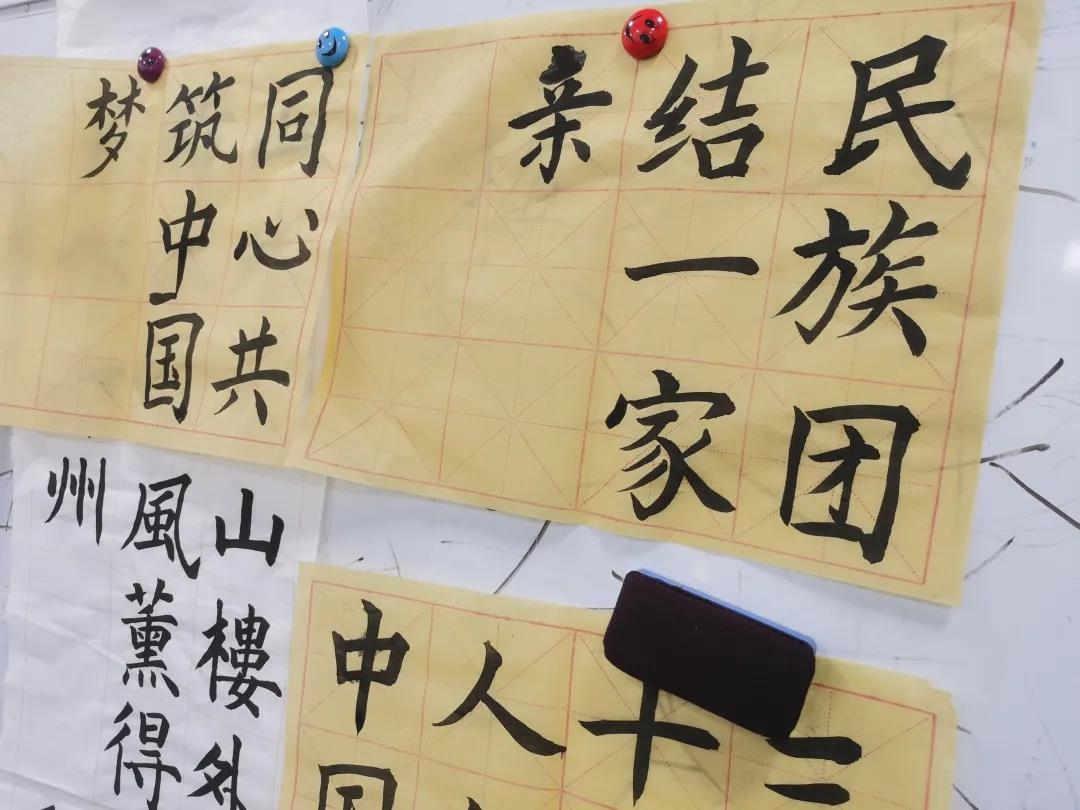 民族团
结一家
亲
同心共
筑中国
梦
山樓外
風薰得
州
十
人
中国